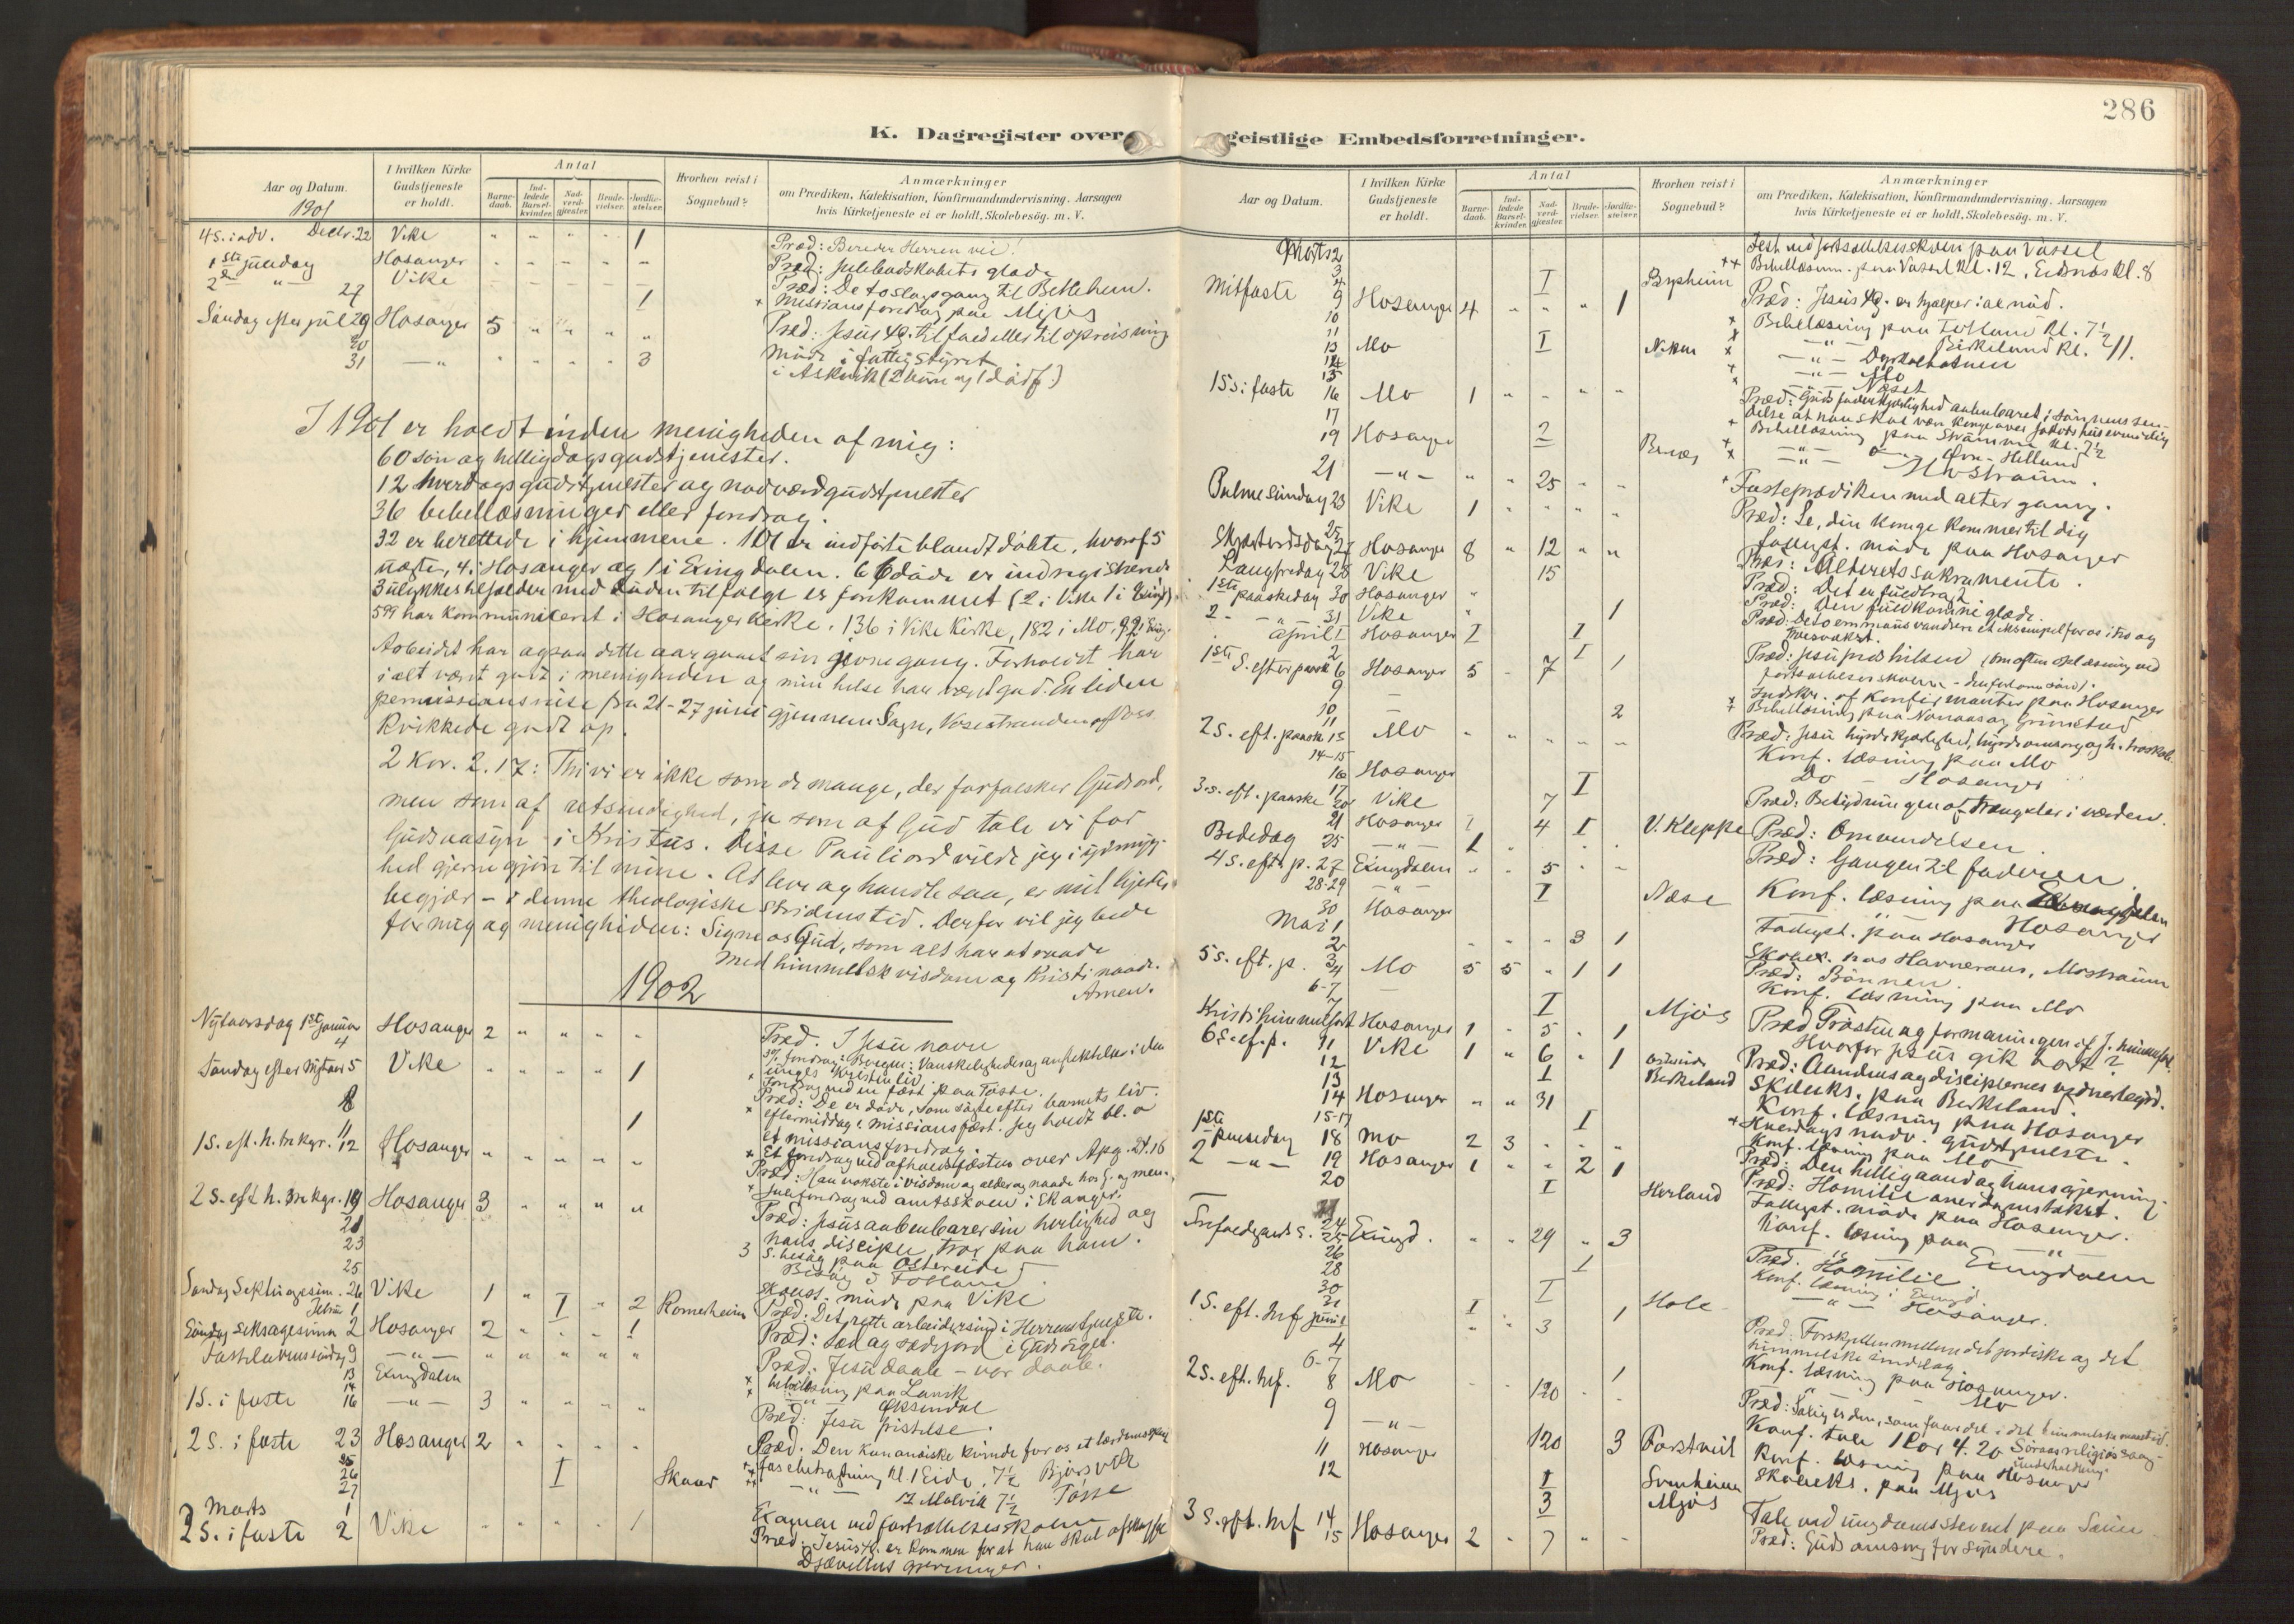 286
K. Dagregister over geistlige Embedsforretninger.
Aar og Datum.
1901
I hvilken Kirke Gudstjeneste er holdt.
Antal
Barne-daab.
Ind-ledede Barsel-kvinder.
Nad-verd-gjæster.
Brude-vielser.
Jordfæ-stelser.
Hvorhen reist i Sognebud?
Anmærkninger
om Prædiken, Katekisation, Konfirmandundervisning. Aarsagen
hvis Kirketjeneste ei er holdt, Skolebesøg. m. V.
4 S. i adv. Decbr. 22 Vike 1 Præd: Bereder Herren vei!
1ste juledag Hosanger Præd: julebudskabets glæde
2den " Vike Præd: De to slags gang til Betlehem.
27 1 + Missionsforedrag paa Mjøs
Søndag efter jul 29 Hosanger 5 Præd. Jesus til fald eller til opreisning
30 Møde i fattigstyret
31 — " 3 i Askvik
I 1901 er holdt inden menigheden af mig:
60 søn og helligdagsgudstjenester.
12 hverdagsgudstjenester og nadverdgudstjenester
36 bibellæsninger eller foredrag.
32 er berettede i hjemmene. 101 er indførte blandt døbte, hvoraf 5
uægte, 4 i Hosanger og 1 i Exingdalen. 66 døde er indregistrerede
3 ulykkestilfælder med døden tilfølge er forekommet (2 i Vike 1 i Exingd).
599 har kommuniceret i Hosanger kirke, 136 i Vike kirke, 182 i Mo,
Arbeidet har ogsaa dette aar gaaet sin jevne gang. Forholdet har
i alt været godt i menigheden og min helse har været god. En liden
permissionsreise fra 21-27 juni gjennem Sogn, Vossestranden og Voss
kvikkede godt op.
2 Kor. 2. 17: Thi vi er ikke som de mange, der forfalsker Guds ord,
men som af retsindighed, ja som af Gud tale vi for
Guds aasyn i Kristus. Disse Pauli ord vilde jeg i ydmyg-
hed gjerne gjøre til mine. At leve og handle saa, er mit hjertes
begjær - i denne theologiske stridens tid. Derfor vil jeg bede
for mig og menigheden: Signe os Gud, som alt har at raade
Med himmelsk visdom og Kristi naade.
Amen.
1902
Nytaarsdag 1ste januar Hosanger 2 Præd. I Jesu navn
4
Søndag efter Nytaar 5 Vike 1 unges kristenliv.
Foredrag ved en fæst paa Tosse.
Præd: De er døde, som søgte efter barnets liv.
8 1 + eftermiddag: missionsfæst. Jeg holdt bl. a
11 et missionsforedrag.
1 S. eft. h. tre kgr. 12 Hosanger + Et foredrag ved afholdsfæsten over Apg. 24.16
Præd: Han vokste i visdom og alder og naade hos G. og men.
2 S. eft h. 3re kgr. 19 Hosanger 3 juleforedrag ved amtsskolen i Ekanger.
21 Præd: Jesus aabenbarer sin herlighed og
23 hans disciple tror paa ham.
25 3 S. besøg paa Ostereide
Besøg i Totland
Søndag Septuagesim. 26 Vike 1 I 2 Romerheim Præd: Det rette arbeidersind i Herrens tjeneste.
Febru 1 møde paa Vike
Søndag Seksagesima 2 Hosanger 2 1 Præd: Sæd og sædejord i Gudsriget.
Fastelavenssøndag 9 — " — Præd: Jesu daab - vor daab.
13 Exingdalen + bibellæsning paa Lavik
14 + Oksendal
1 S. i faste 16 — " — 3 Præd: Jesu fristelse.
2 S. i faste 23 Hosanger 2 Præd. Den kananæiske kvinde for os et lærdomsspeil
25
26 I Skaar fastebetragtning kl. 1 Eide, 7½ Bjørsvik
27 12 Molvik 7½ Tosse
Marts 1 Examen ved fortsættelsesskolen
3 S. i faste 2 Vike 1 Præd: Jesus er kommen for at han skal afskaffe
Djævelens gjerninger.
Aar og Datum.
I hvilken Kirke Gudstjeneste er holdt.
Antal
Barne-daab.
Ind-ledede Barsel-kvinder.
Nad-verd-gjæster.
Brude-vielser.
Jordfæ-stelser.
Hvorhen reist i Sognebud?
Anmærkninger
om Prædiken, Katekisation, Konfirmandundervisning. Aarsagen
hvis Kirketjeneste ei er holdt, Skolebesøg. m. V.
Marts 2 Fest ved fortsættelsesskolen paa Vassel
3 ++ Bibellæsn. paa Vassel kl. 12, Eidsnes kl. 8
4 I Bysheim
Mitfaste 9 Hosanger 4 1 Præd: Jesus er hjælper i al nød.
10 + Bibellæsning paa Totland kl. 7½
11 + — " — Birkeland kl. 11.
13 Mo I + — " — Dyrkolbotnen
14 + — " — Mo
15 Næset
15 S. i faste 16 Mo 1 Præd: Guds faderkjærlighed aabenbaret i sønnens sen-
17 delse at han skal være konge over Jakobs hus evindelig
19 Hosanger 2 + Bibellæsning paa Strømme kl. 7½
— " — Helland
21 — " — 25 + Fasteprædiken med altergang.
Palmesøndag 23 Vike 1 Præd: Se, din konge kommer til dig
25 fattigst. møde paa Hosanger
Skjærtorsdag 27 Hosanger 8 12 Præd: Alterets sakramente.
Langfredag 28 Vike 15 Præd: Det er fuldbragt
1ste paaskedag 30 Hosanger Præd: Den fuldkomne glæde.
2 — " — 31 Vike 1 Præd: De to emmausvandrere et eksempel for os i tro og
troesvækst.
April 1 Hosanger I I
2 I
1ste S. efter paaske 6 Hosanger 5 7 1 Præd: Jesu fredshilsen
9 — Indskr. af konfirmanter paa Hosanger
10 — + Bibellæsning paa Nonaas og Grimstad
11 2
2 S. eft. paaske 13 Mo Præd: Jesu hyrdekjærlighed, hyrdeomsorg og h. troskab.
14-15 Konf. læsning paa Mo
16 Hosanger Do — Hosanger
17 I
3. S. eft. paaske 20 Vike 7 Præd: Betydningen af trængsler i verden.
21 Hosanger 4 I V. Kleppe
Bededag 25 — " — 1 Præd: Omvendelsen.
4 S. eft. p. 27 Exingdalen 5 Præd: Gangen til faderen.
28-29 — " — I Næse Konf. læsning paa Exingdalen
30 Hosanger Hosanger
Mai 1 Fattigst. paa Hosanger
2 3 1
3 Skolex. hos Havneraas, Mostraum
5 S. eft. p. 4 Mo 5 5 1 1 Præd: Bønnen.
6-7 — Konf. læsning paa Mo
7 I Mjøs
Kristi himmelfart Hosanger 1 5 1 Præd Trøsten og formaningen af J. himmelfart.
Hvorfor Jesus gik bort?
6 S. ef. p. 11 Vike 1 6 1 Præd: Aandens og disciplernes vidnesbyrd.
12 1 Birkeland Skoleeks. paa Birkeland.
13 Konf. læsning paa Hosanger
14 Hosanger 31 + Hverdags nadv. gudstjeneste.
15-17 I Konf. læsning paa Mo
1ste pinsedag 18 Mo 2 3 Præd: Den hellig aand og hans gjerning.
2 — " — 19 Hosanger 1 2 1 Præd: Homilie over dagens tekst.
20 I Herland Fattigst. møde paa Hosanger.
24 Konf. læsning paa Exingdalen
Trefoldigheds S. 25 Exingd. 29 3 Præd. Homilie.
26 1 Konf. læsning i Exingd
28 — " — Hosanger.
30 I Hole
31 I
1 S. eft. tref juni 1 3 1 Præd: Forskjellen mellem det jordiske og det
himmelske sindelag.
4 Konf. læsning paa Hosanger.
6-7 1 " Mo
2 S. eft. tref. 8 Mo 120
9 — " — Konf. tale 1 Cor 4. 20
11 Hosanger 120 3 Forstveit Konf. læsning paa Hosanger
12 1 Svenheim Skoleeks. paa Mjøs
14 3 Mjøs Tale ved ungdomsstevnet paa
3 S. eft. tref 15 Hosanger 2 7 Præd: Guds omsorg for syndere.